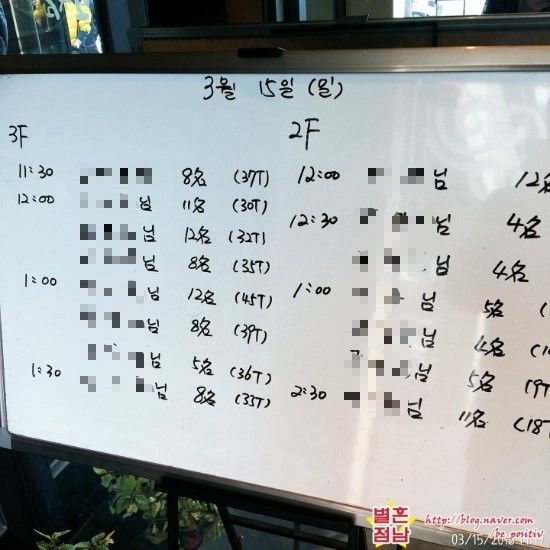 3월 15일 (일)
3F
11:30 8名 (37T)
12:00 님 11名 (30T)
님 12名 (32T)
님 8名 (35T)
1:00 님 12名 (45T)
님 8名 (39T)
님 5名 (36T)
1:30 님 8名 (33T)
2F
12:00 님 12名
12:30 님 4名
님 4名
1:00 님 5名 (
님 4名 (1
님 5名 (19T
2:30 님 11名 (18T
별혼
점남
http://blog.naver.com
be_positiv
03/15/20